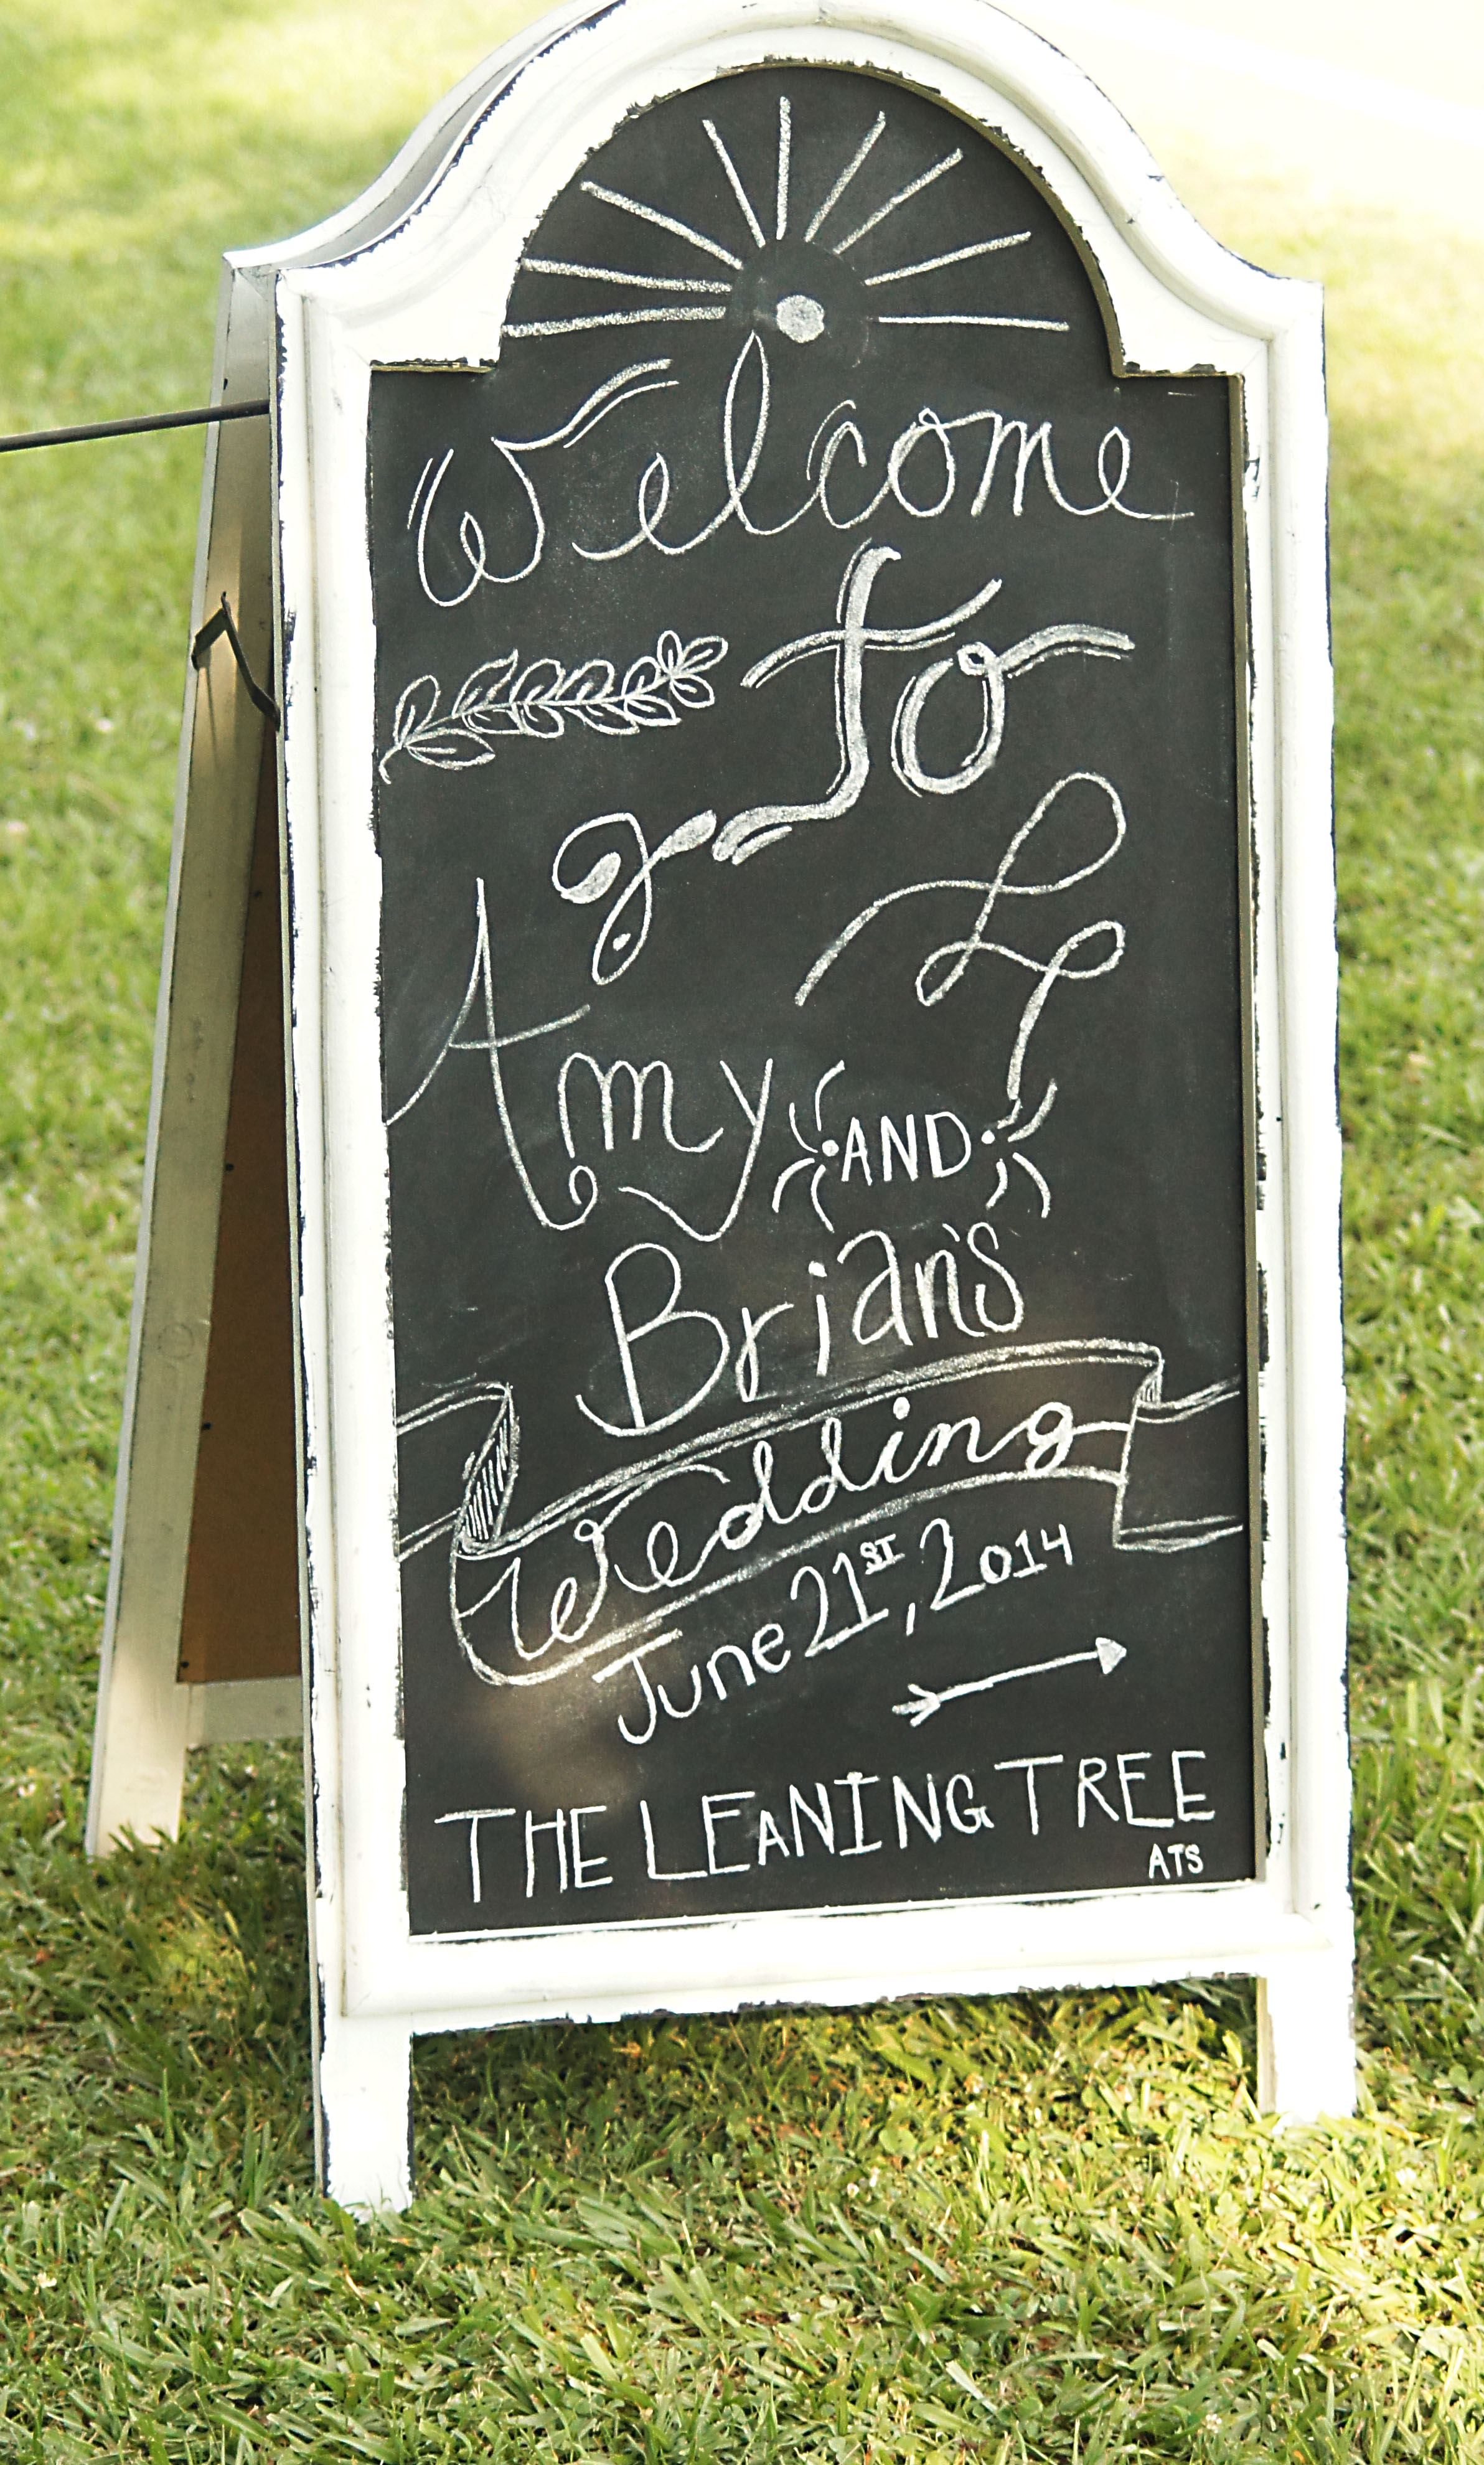 Welcome
to
Amy AND
Brian's
Wedding
June 21ST, 2014
THE LEANING TREE
ATS